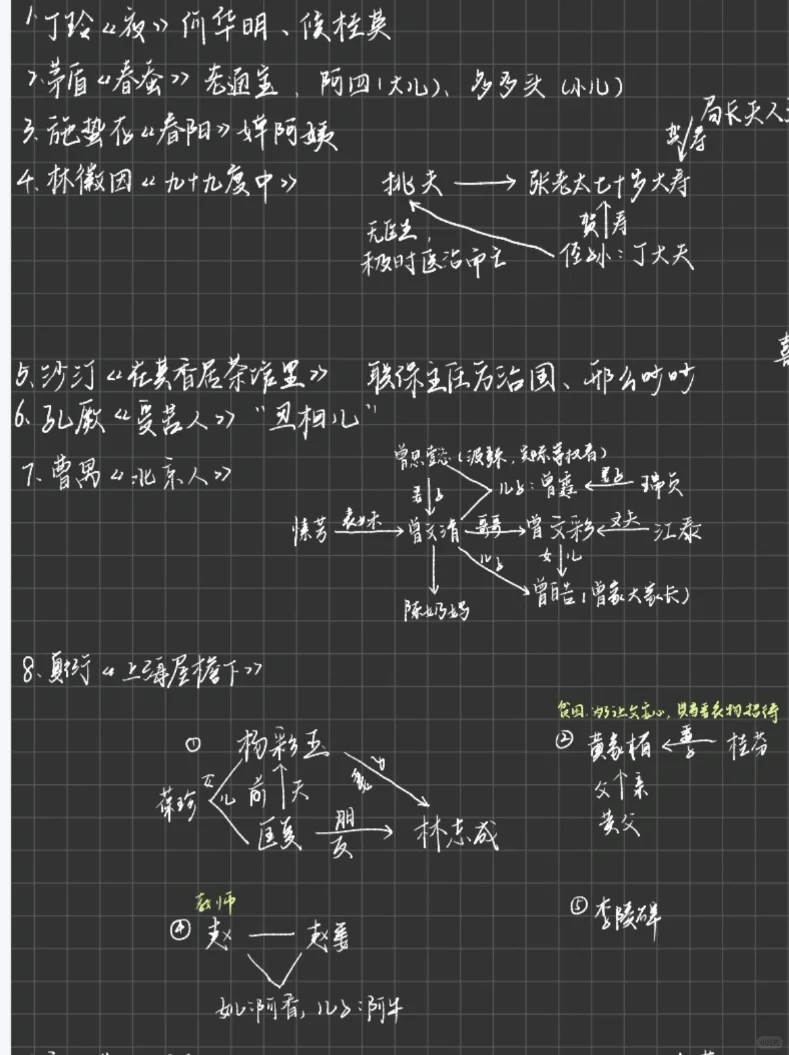 1.丁玲《夜》何华明、侯桂英
2.茅盾《春蚕》老通宝、阿四(大儿)、多多头(小儿)
3.施蛰存《春阳》婵阿姨
4.林徽因《九十九度中》
挑夫 → 张老太七十岁大寿
贺寿
局长
无医生,
极时医治而亡
贺寿
侄孙:丁大夫
喜
5.沙汀《在其香居茶馆里》 联保主任方治国、邢么吵吵
6.孔厥《受苦人》"丑相儿"
7.曹禺《北京人》
曾思懿(泼辣,实际掌权者)
妻子
儿子:曾霆 ← 妻子 瑞贞
愫芳 表妹 → 曾文清 → 曾文彩 ← 丈夫 江泰
儿子
女儿
陈奶妈
曾皓(曾家大家长)
8.夏衍《上海屋檐下》
① 杨彩玉
葆珍 女儿
前夫
匡复 朋友 → 林志成
贫困,为了让父亲
② 黄家楣 ← 妻子 桂芬
父亲
黄父
教师
④ 赵 — 赵妻
女儿:阿香,儿子:阿牛
⑤ 李陵碑